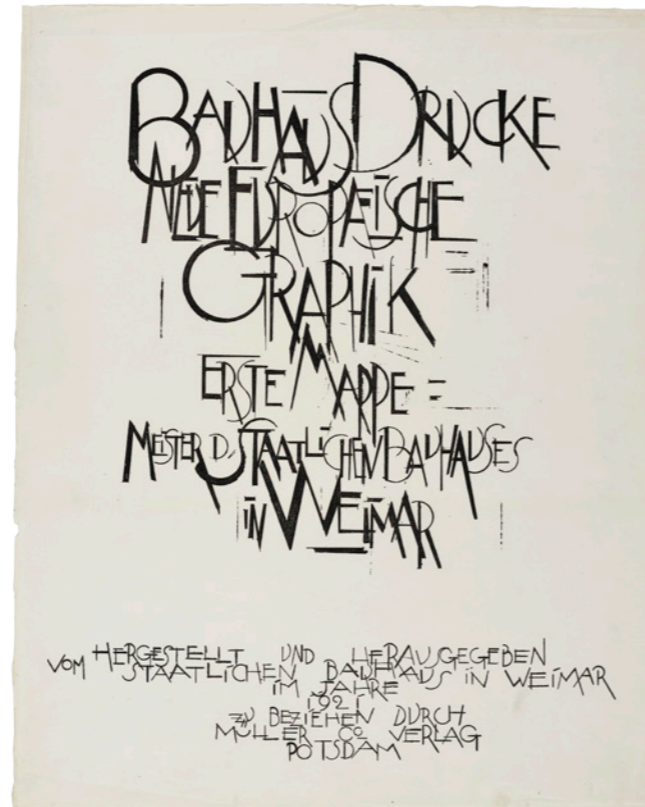 BAUHAUS DRUCKE
NEUE EUROPÆISCHE
GRAPHIK
ERSTE MAPPE
MEISTER D. STAATLICHEN BAUHAUSES
IN WEIMAR
HERGESTELLT UND HERAUSGEGEBEN
VOM STAATLICHEN BAUHAUS IN WEIMAR
IM JAHRE
1921
ZU BEZIEHEN DURCH
MÜLLER & CO VERLAG
POTSDAM